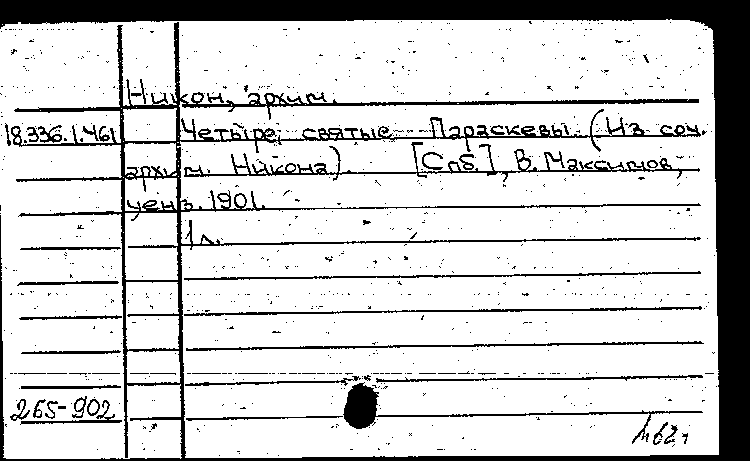 Никон, архим.
18.336.1.461 Четыре святые Параскевы (Из соч.
архим. Никона). [Спб.], В. Максимов,
ценз. 1901.
1 л.
265-902